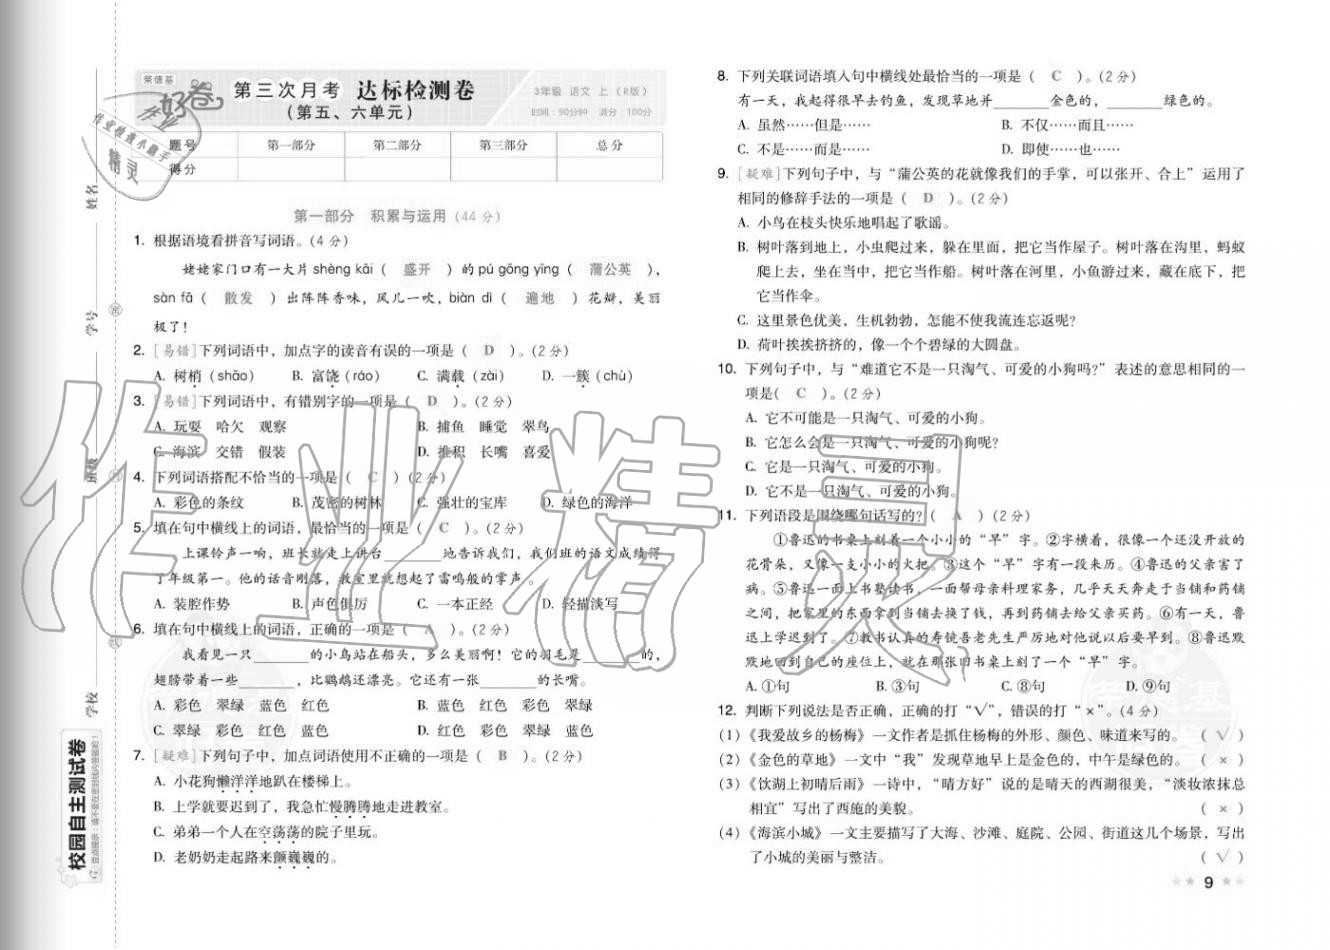 荣德基
好卷
第三次月考 达标检测卷
(第五、六单元)
3年级 语文 上(R版)
时间:90分钟 满分:100分
作业检查小助手
精灵
题号 第一部分 第二部分 第三部分 总分
得分
第一部分 积累与运用(44分)
1. 根据语境看拼音写词语。(4分)
姥姥家门口有一大片 shèng kāi( 盛开 )的 pú gōng yīng( 蒲公英 ),
sàn fā( 散发 )出阵阵香味,风儿一吹,biàn dì( 遍地 )花瓣,美丽
极了!
2. [易错]下列词语中,加点字的读音有误的一项是( D )。(2分)
A. 树梢(shāo) B. 富饶(ráo) C. 满载(zài) D. 一簇(chù)
3. [易错]下列词语中,有错别字的一项是( D )。(2分)
A. 玩耍 哈欠 观察 B. 捕鱼 睡觉 翠鸟
C. 海滨 交错 假装 D. 推积 长嘴 喜爱
4. 下列词语搭配不恰当的一项是( C )(2分)
A. 彩色的条纹 B. 茂密的树林 C. 强壮的宝库 D. 绿色的海洋
5. 填在句中横线上的词语,最恰当的一项是( C )。(2分)
上课铃声一响,班长就走上讲台______地告诉我们,我们班的语文成绩得
了年级第一。他的话音刚落,教室里就想起了雷鸣般的掌声。
A. 装腔作势 B. 声色俱厉 C. 一本正经 D. 轻描淡写
6. 填在句中横线上的词语,正确的一项是( A )。(2分)
我看见一只______的小鸟站在船头,多么美丽啊!它的羽毛是______的,
翅膀带着一些______,比鹦鹉还漂亮。它还有一张______的长嘴。
A. 彩色 翠绿 蓝色 红色 B. 蓝色 红色 彩色 翠绿
C. 翠绿 彩色 蓝色 红色 D. 红色 彩色 翠绿 蓝色
7. [疑难]下列句子中,加点词语使用不正确的一项是( B )。(2分)
A. 小花狗懒洋洋地趴在楼梯上。
B. 上学就要迟到了,我急忙慢腾腾地走进教室。
C. 弟弟一个人在空荡荡的院子里玩。
D. 老奶奶走起路来颤巍巍的。
8. 下列关联词语填入句中横线处最恰当的一项是( C )。(2分)
有一天,我起得很早去钓鱼,发现草地并______金色的,______绿色的。
A. 虽然……但是…… B. 不仅……而且……
C. 不是……而是…… D. 即使……也……
9. [疑难]下列句子中,与“蒲公英的花就像我们的手掌,可以张开、合上”运用了
相同的修辞手法的一项是( D )。(2分)
A. 小鸟在枝头快乐地唱起了歌谣。
B. 树叶落到地上,小虫爬过来,躲在里面,把它当作屋子。树叶落在沟里,蚂蚁
爬上去,坐在当中,把它当作船。树叶落在河里,小鱼游过来,藏在底下,把
它当作伞。
C. 这里景色优美,生机勃勃,怎能不使我流连忘返呢?
D. 荷叶挨挨挤挤的,像一个个碧绿的大圆盘。
10. 下列句子中,与“难道它不是一只淘气、可爱的小狗吗?”表述的意思相同的一
项是( C )。(2分)
A. 它不可能是一只淘气、可爱的小狗。
B. 它怎么会是一只淘气、可爱的小狗呢?
C. 它是一只淘气、可爱的小狗。
D. 它不是一只淘气、可爱的小狗。
11. 下列语段是围绕哪句话写的?( A )(2分)
①鲁迅的书桌上刻着一个小小的“早”字。②字横着,很像一个还没开放的
花骨朵,又像一支小小的火把。③这个“早”字有一段来历。④鲁迅的父亲害了
病。⑤鲁迅一面上书塾读书,一面帮母亲料理家务,几乎天天奔走于当铺和药铺
之间,把家里的东西拿到当铺去换了钱,再到药铺去给父亲买药。⑥有一天,鲁
迅上学迟到了。⑦教书认真的寿镜吾老先生严厉地对他说以后要早到。⑧鲁迅默
默地回到自己的座位上,就在那张旧书桌上刻了一个“早”字。
A. ①句 B. ③句 C. ⑧句 D. ⑨句
12. 判断下列说法是否正确,正确的打“√”,错误的打“×”。(4分)
(1)《我爱故乡的杨梅》一文作者是抓住杨梅的外形、颜色、味道来写的。 ( √ )
(2)《金色的草地》一文中“我”发现草地早上是金色的,中午是绿色的。 ( × )
(3)《饮湖上初晴后雨》一诗中,“晴方好”说的是晴天的西湖很美,“淡妆浓抹总
相宜”写出了西施的美貌。 ( × )
(4)《海滨小城》一文主要描写了大海、沙滩、庭院、公园、街道这几个场景,写出
了小城的美丽与整洁。 ( √ )
9
姓名
学号
班级
学校
密
封
线
校园自主测试卷
作业精灵